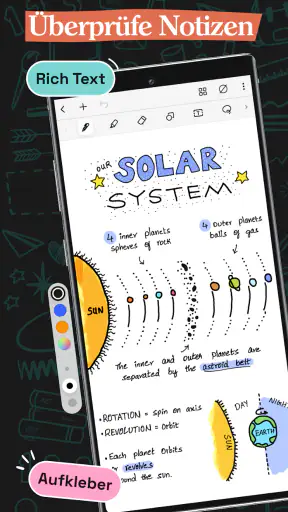 Überprüfe Notizen
Rich Text
OUR
SOLAR
SYSTEM
4 inner planets
spheres of rock
4 outer planets
balls of gas
SUN
The inner and outer planets are
separated by the astroid belt
•ROTATION = spin on axis
•REVOLUTION = Orbit
• Each planet Orbits
or revolves
around the sun.
DAY
NIGHT
SUN
EARTH
Aufkleber